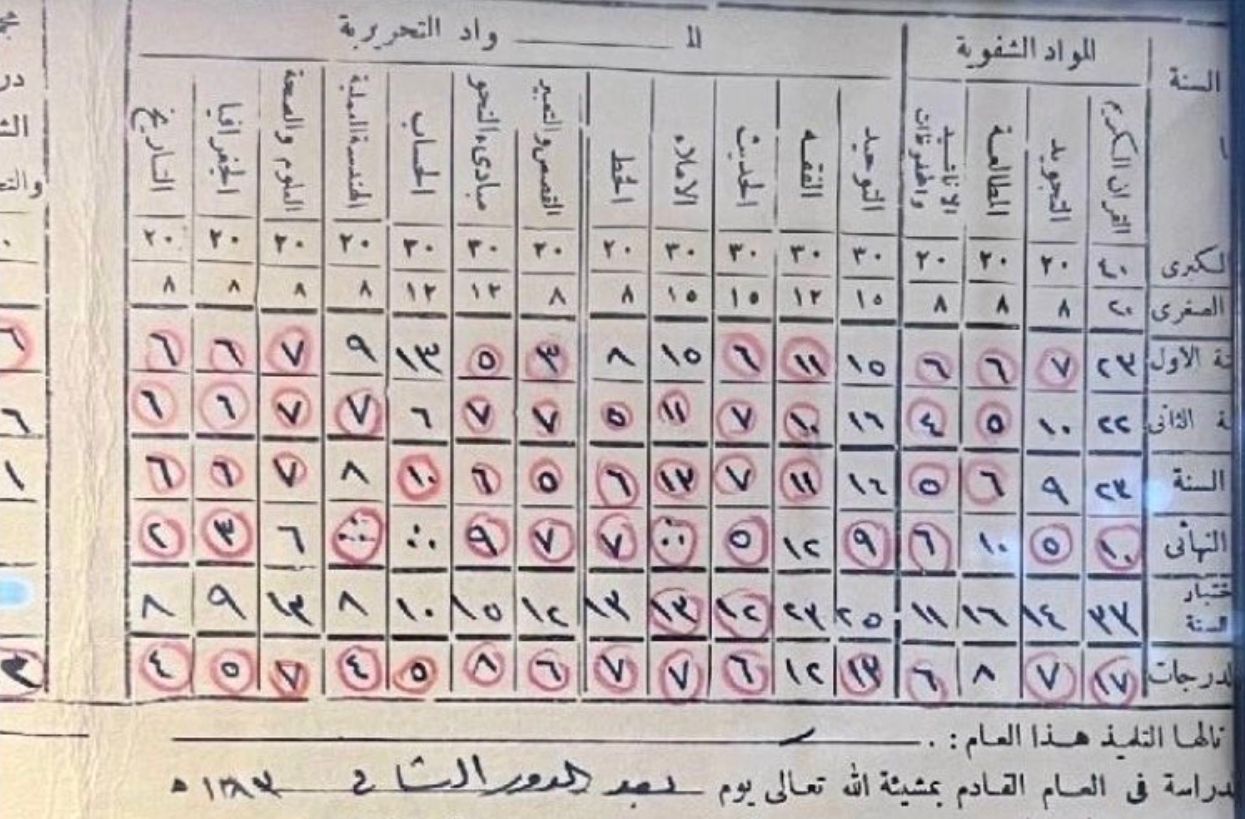 السنة المواد الشفوية المـــواد التحريرية
القرآن الكريم التجويد المطالعة الاناشيد والمحفوظات التوحيد الفقه الحديث الاملاء الخط القصص والتعبير مبادىء النحو الحساب الهندسة العملية العلوم والصحة الجغرافيا التاريخ
الكبرى ٤٠ ٢٠ ٢٠ ٢٠ ٣٠ ٣٠ ٣٠ ٣٠ ٢٠ ٢٠ ٣٠ ٣٠ ٢٠ ٢٠ ٢٠ ٢٠
الصغرى ٢٠ ٨ ٨ ٨ ١٥ ١٢ ١٥ ١٥ ٨ ٨ ١٢ ١٢ ٨ ٨ ٨ ٨
ـة الأولى ٢٣ ٧ ٦ ٦ ١٥ ١١ ٦ ١٥ ٨ ٣ ٥ ١٣ ٩ ٧ ٦ ٦
ـة الثانى ٢٢ ١٠ ٥ ٤ ١٦ ١٠ ٧ ١١ ٥ ٧ ٧ ٦ ٧ ٧ ٦ ٦ ٦
السنة ٢٣ ٩ ٦ ٥ ١٦ ١١ ٧ ١٣ ٦ ٥ ٦ ١٠ ٨ ٧ ٦ ٦ ١
النهائى ١٠ ٥ ١٠ ٦ ٩ ١٢ ٥ ٧ ٧ ٩ ٦ ٣ ٢
ختبار السنة ٣٣ ١٤ ١٦ ١١ ٢٥ ٢٣ ١٢ ١٣ ١٣ ١٢ ١٥ ١٠ ٨ ١٣ ٩ ٨
لدرجات ١٧ ٧ ٨ ٦ ١٣ ١٢ ٦ ٧ ٧ ٦ ٨ ٥ ٤ ٧ ٥ ٤ ٣
نالها التلميذ هـذا العـام : .
لدراسة فى العـام القـادم بمشيئة الله تعالى يوم بعد الدور الثانى ١٣٨٣ ه